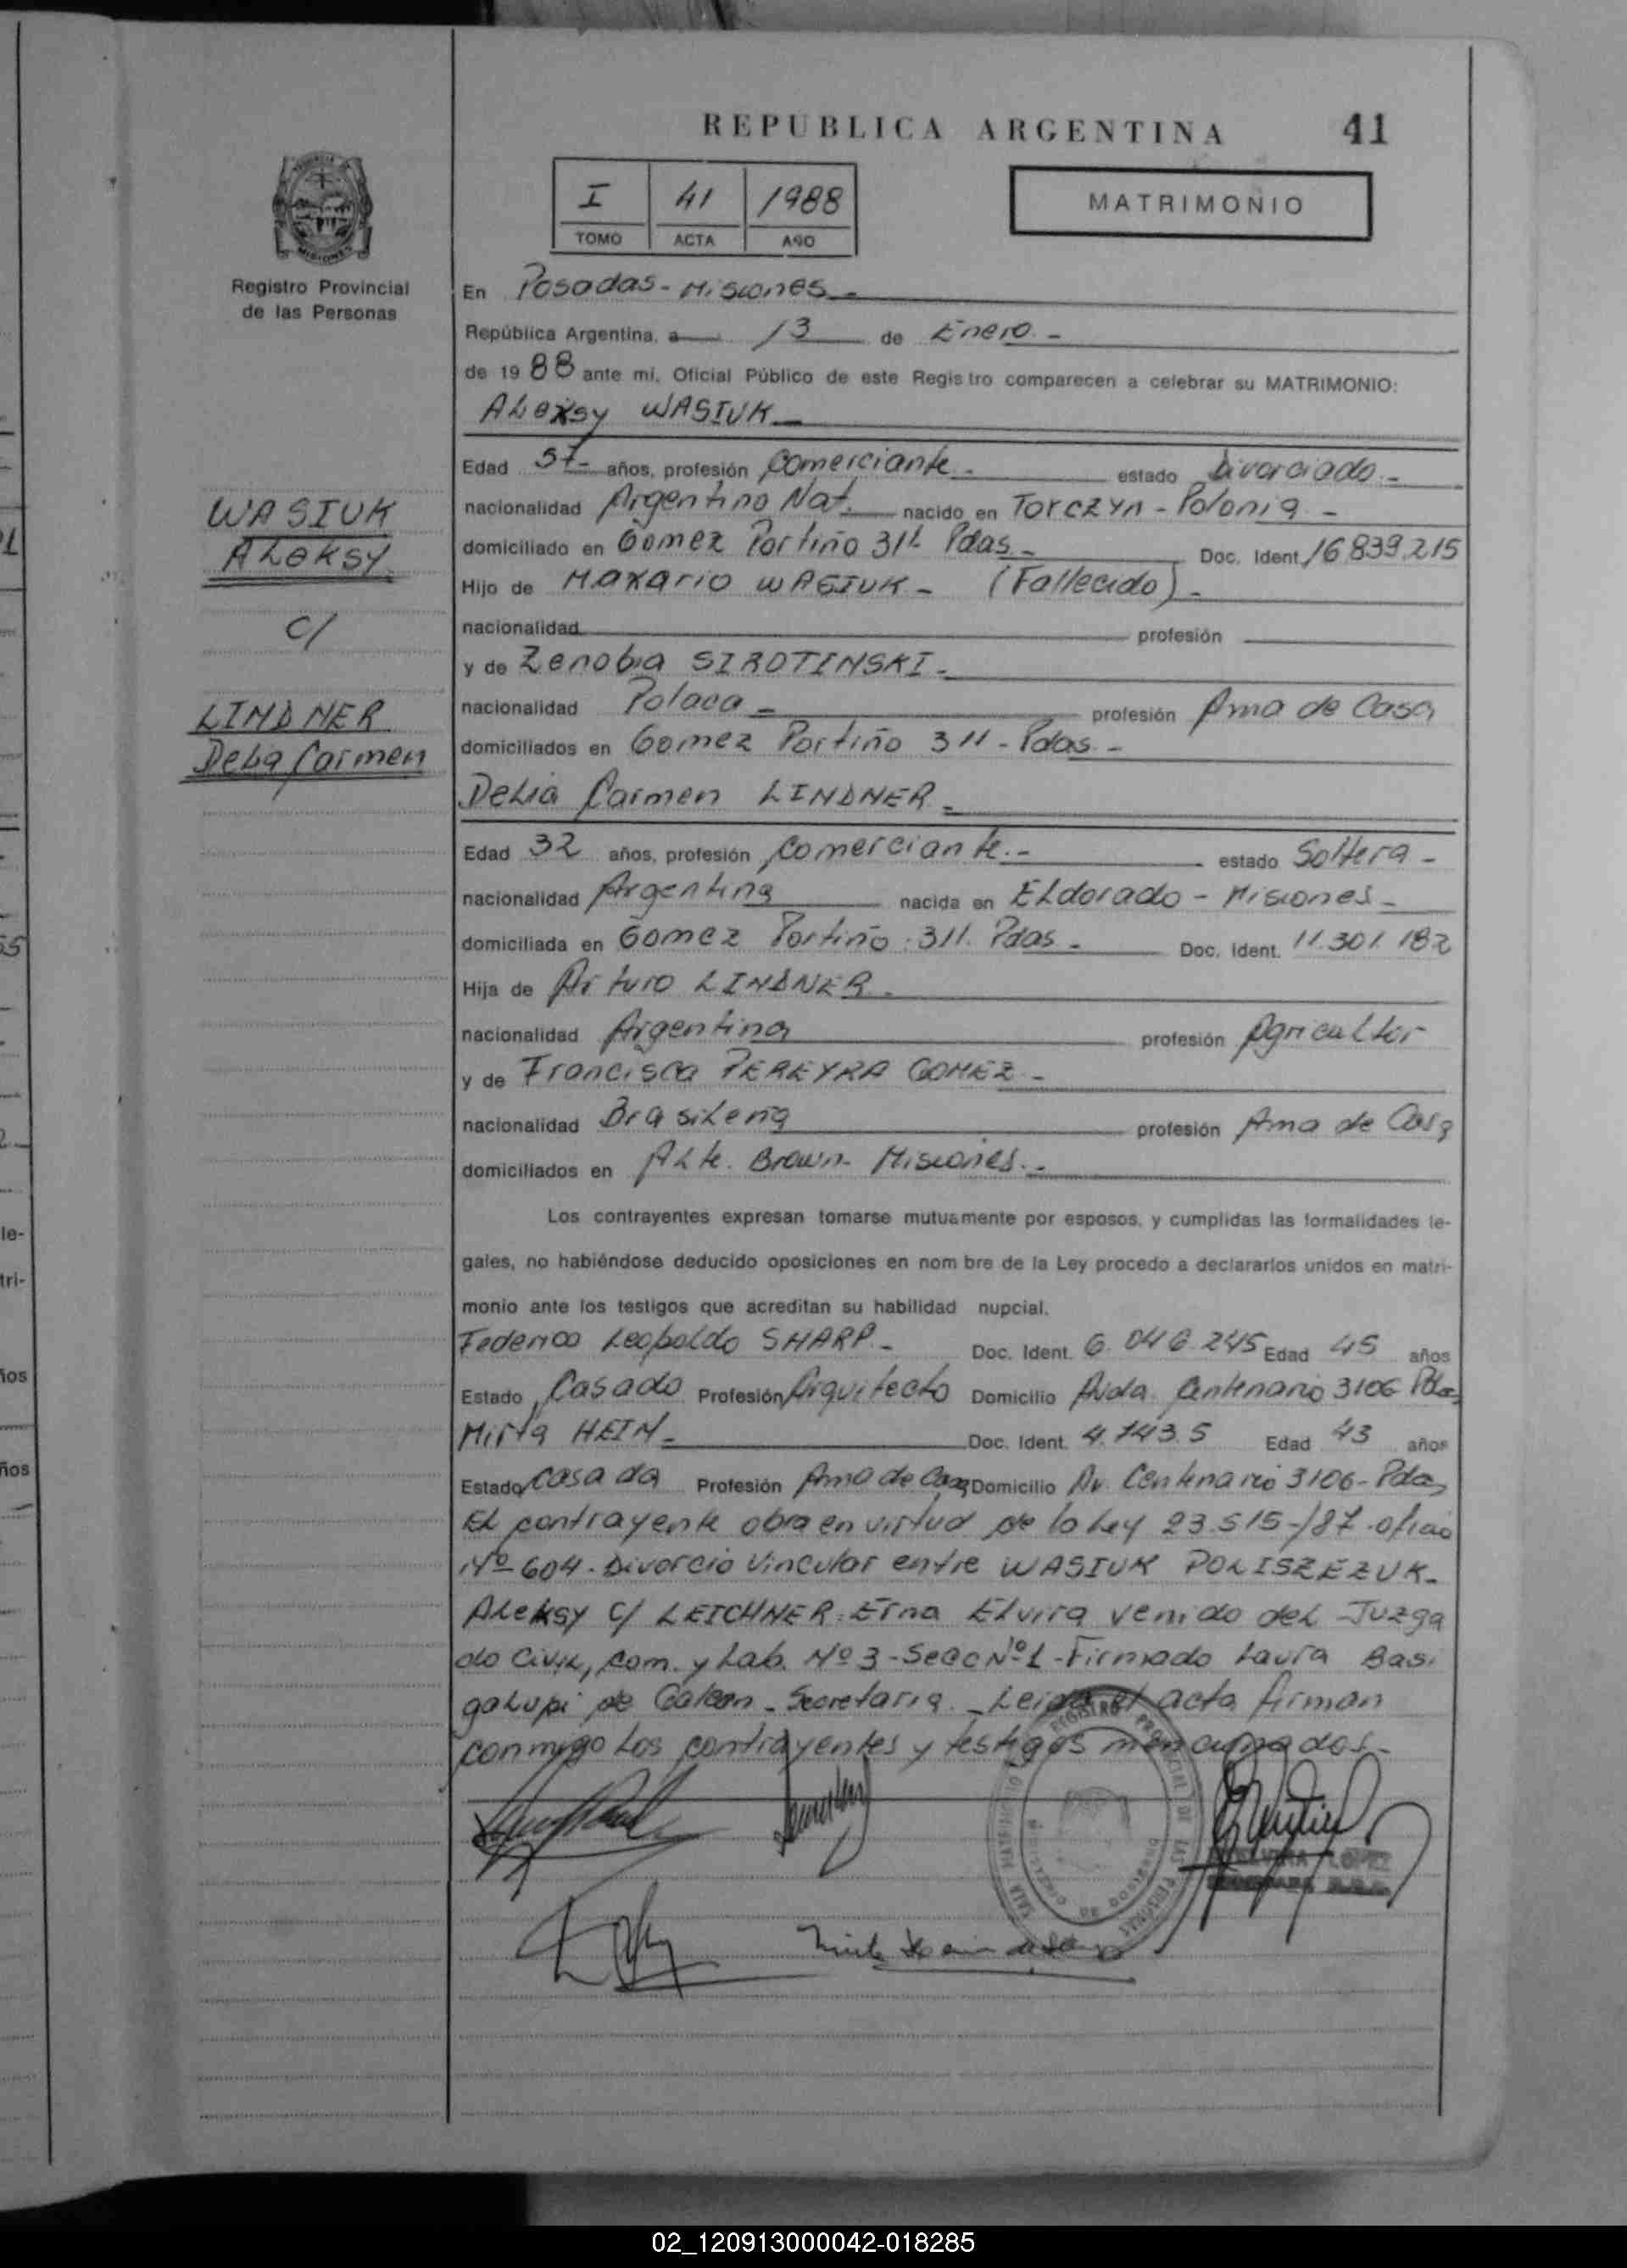 REPUBLICA ARGENTINA 41
I 41 1988
TOMO ACTA AÑO
MATRIMONIO
Registro Provincial
de las Personas
En Posadas - Misiones -
República Argentina, a 13 de Enero. -
de 1988 ante mi, Oficial Público de este Registro comparecen a celebrar su MATRIMONIO:
ALeksy WASIUK
Edad 57 - años, profesión Comerciante. - estado Divorciado. -
nacionalidad Argentino Nat. nacido en TORCZYn - Polonia -
domiciliado en Gomez Portiño 311 Pdas. - Doc. Ident. 16.839.215
Hijo de Makario WASIUK - (Fallecido) -
nacionalidad profesión
y de Zenobia SIROTINSKI. -
nacionalidad Polaca - profesión Ama de Casa
domiciliados en Gomez Portiño 311 - Pdas. -
WASIUK
ALeksy
c/
LINDNER
Delia Carmen
DeLia Carmen LINDNER -
Edad 32 años, profesión Comerciante. - estado Soltera -
nacionalidad Argentina nacida en ELdorado - Misiones -
domiciliada en Gomez Portiño 311. Pdas - Doc. Ident. 11.301.182
Hija de Arturo LINDNER.
nacionalidad Argentina profesión Agricultor
y de Francisca PEREYRA GOMEZ -
nacionalidad Brasileña profesión Ama de Casa
domiciliados en ALte. Brown - Misiones. -
Los contrayentes expresan tomarse mutuamente por esposos, y cumplidas las formalidades le-
gales, no habiéndose deducido oposiciones en nom bre de la Ley procedo a declararlos unidos en matri-
monio ante los testigos que acreditan su habilidad nupcial.
Federico Leopoldo SHARP. - Doc. Ident. 6.046.245 Edad 45 años
Estado Casado Profesión Arquitecto Domicilio Avda. Centenario 3106 Pdas
Mirta HEIN - Doc. Ident. 4.743.5 Edad 43 años
Estado Casada Profesión Ama de Casa Domicilio Av. Centenario 3106 - Pdas
EL contrayente obra en virtud de la Ley 23.515-/87 - oficio
Nº 604 - Divorcio Vincular entre WASIUK POLISZEZUK -
ALeksy c/ LEICHNER Erna Elvira venido del Juzga
do Civil, Com. y Lab. Nº 3 - Secc Nº 1 - Firmado Laura Basi
galupi de Galeon - Secretaria. - Leida el acta firman
conmigo Los contrayentes y testigos mencionados -
REGISTRO PROVINCIAL DE LAS PERSONAS
LOPEZ
02_120913000042-018285